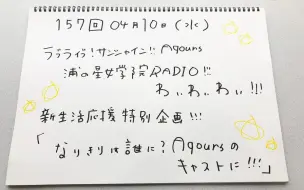 157回 04月10日(水)
ラブライブ!サンシャイン!! Aqours
浦の星女学院RADIO!!
わぃわぃわぃ!!!
新生活応援特別企画!!!
「なりきりは誰に?Aqoursの
キャストに!!!」